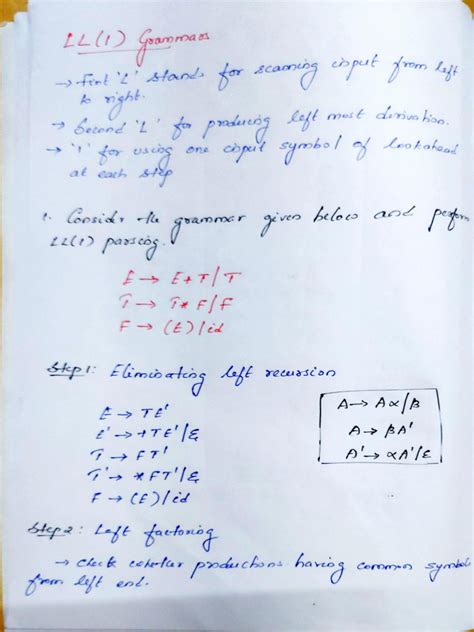 LL(1) Grammars
→ First 'L' stands for scanning input from left
to right.
→ Second 'L' for producing left most derivation.
→ '1' for using one input symbol of lookahead
at each step
1. Consider the grammar given below and perform
LL(1) parsing.
E → E+T/T
T → T*F/F
F → (E)/id
Step 1: Eliminating left recursion
E → TE'
E' → +TE'/ε
T → FT'
T' → *FT'/ε
F → (E)/id
A → Aα/β
A → βA'
A' → αA'/ε
Step 2: Left factoring
→ check whether productions having common symbols
from left end.